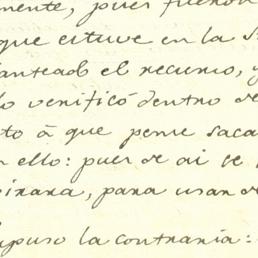 mente, pues fueron
que estuve en la S
lanteado el recurso, y
lo verificó dentro de
to á que pense saca
n ello: pues de ai se
pirara, para usan de
mpuso la contraria: